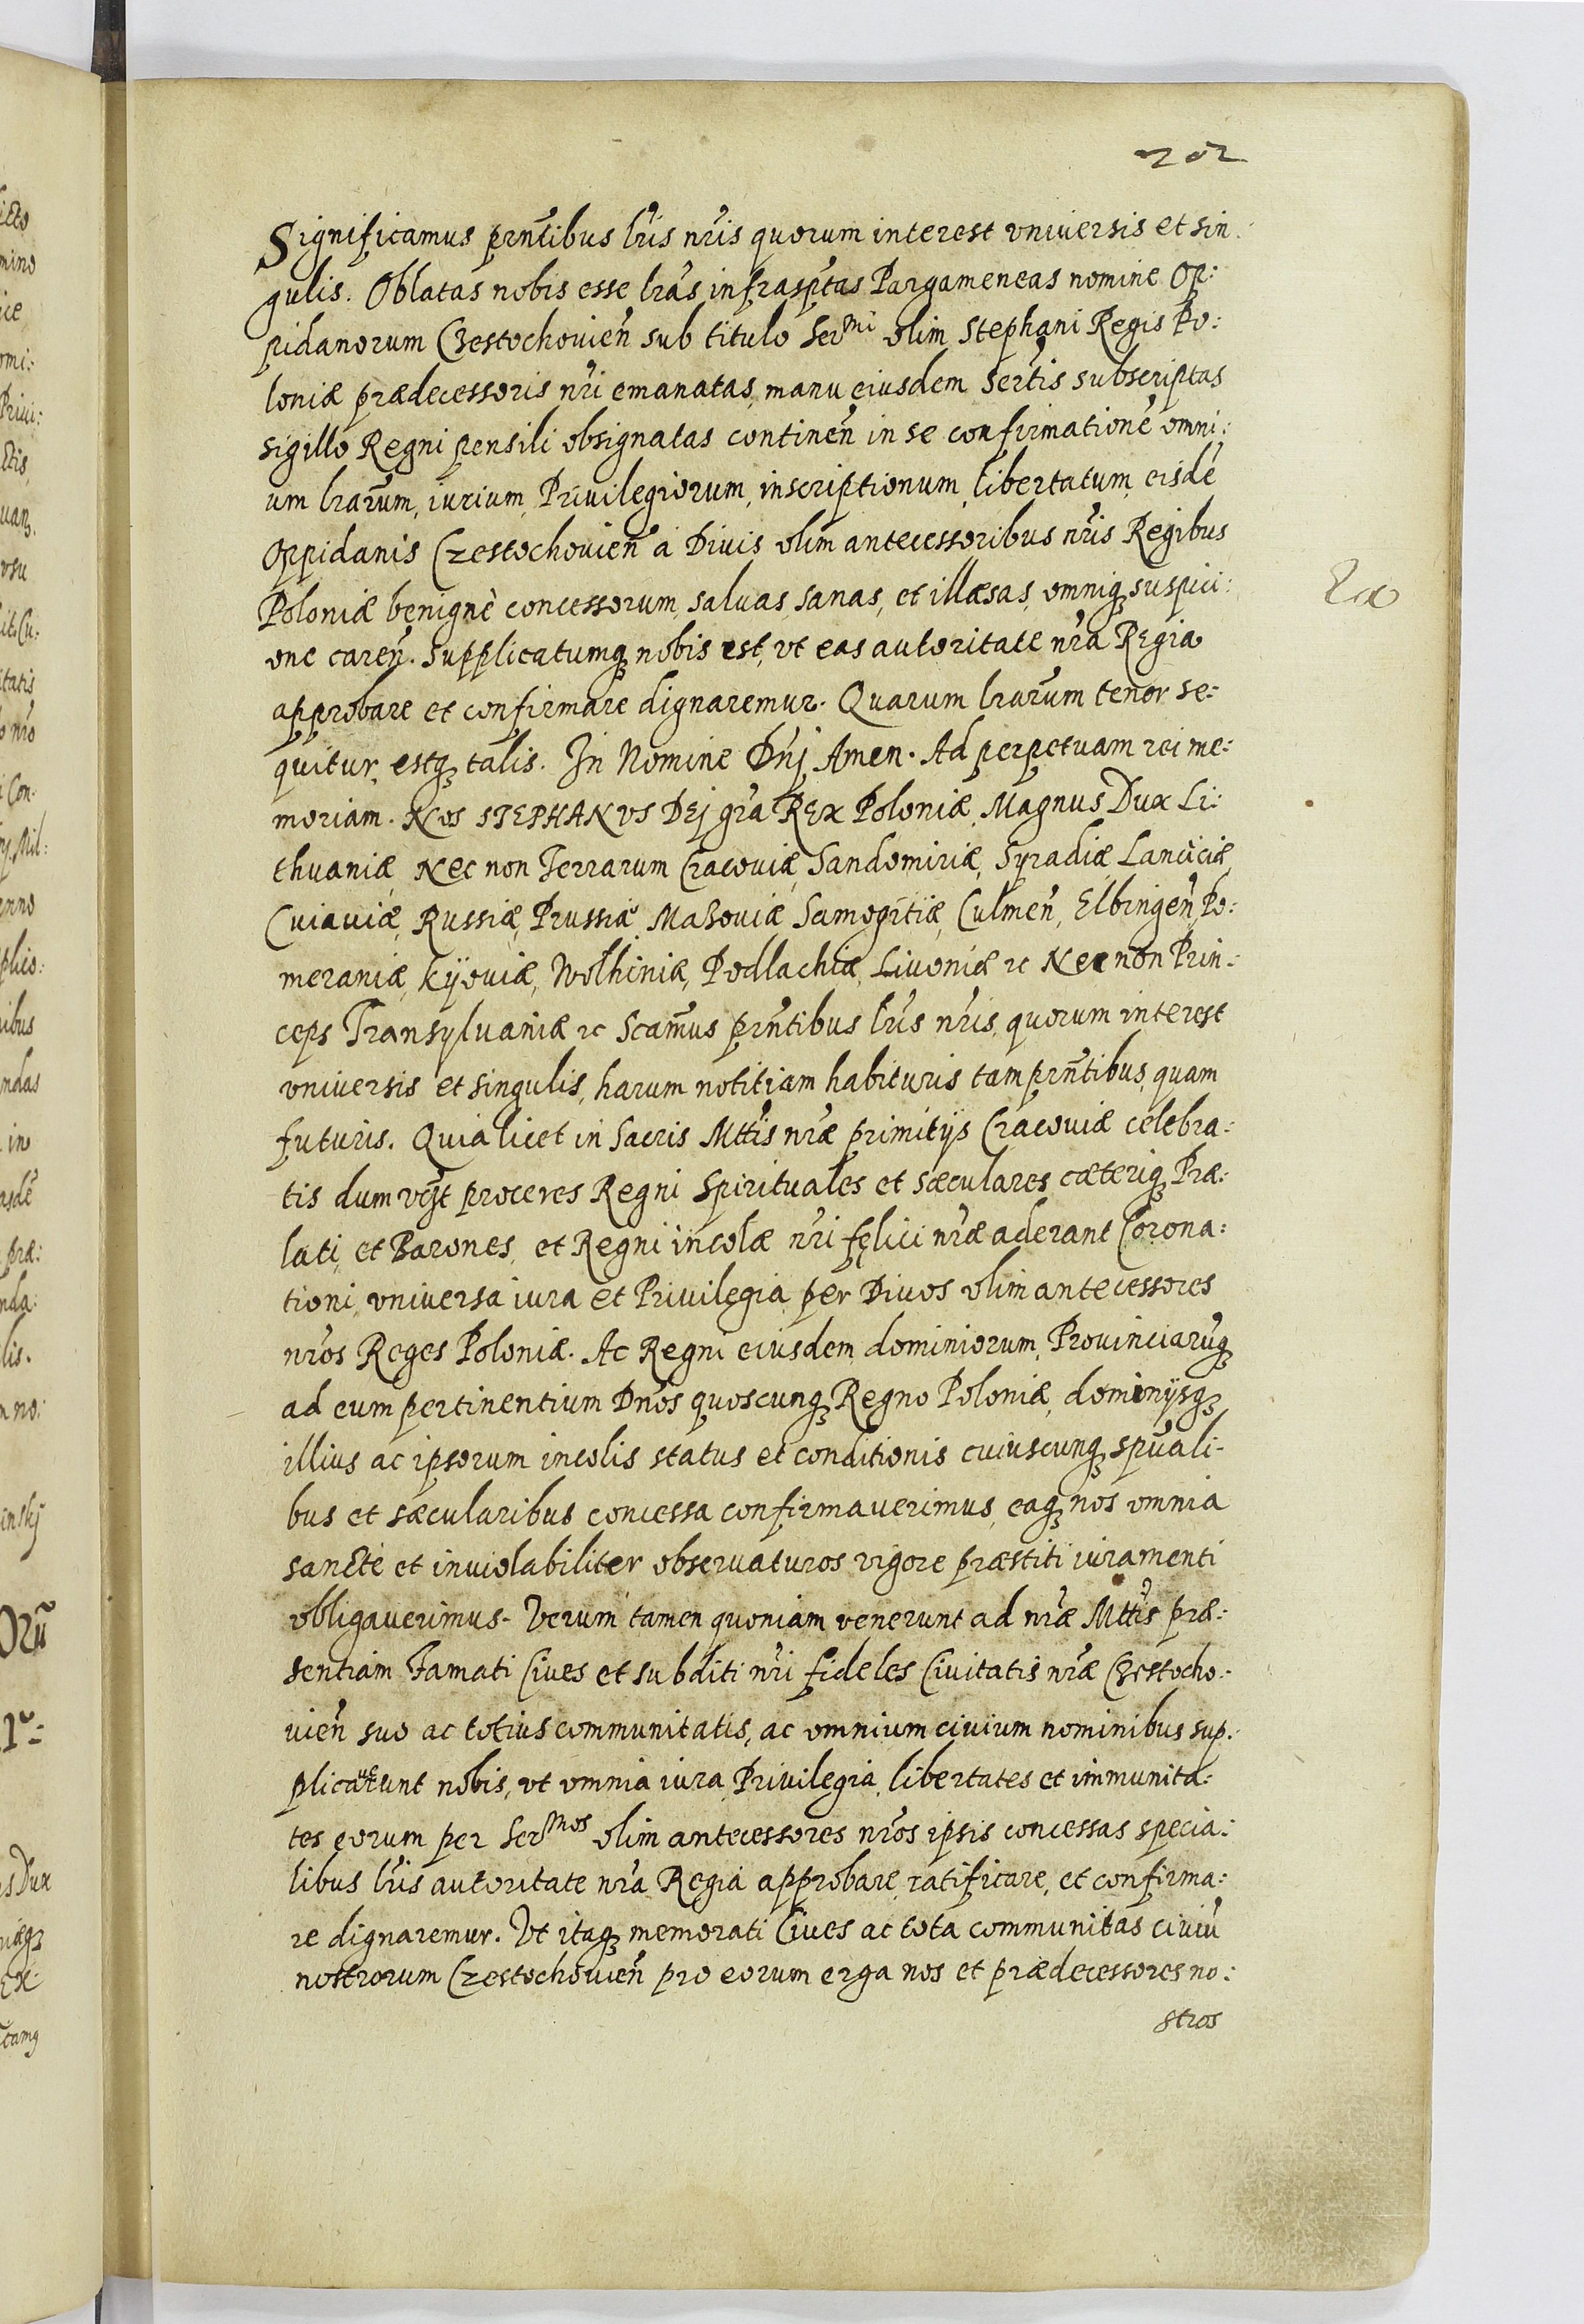 202
Significamus prñtibus lris nris quorum interest vniversis et sin:
gulis. Oblatas nobis esse lras infrasptas Pargameneas nomine Op:
pidanorum Czestochovieñ sub titulo Ser^mi olim Stephani Regis Po:
loniæ prædecessoris nri emanatas, manu eiusdem Sertis subscriptas
sigillo Regni pensili obsignatas contineñ in se confirmationē omni:
um lrarum, iurium, Privilegiorum, inscriptionum, libertatum, eisdē
Oppidanis Czestochovieñ a Divis olim antecessoribus nris Regibus
Poloniæ benignè concessorum, salvas, sanas, et illæsas, omniq3 suspici:
one careñ. Supplicatumq3 nobis est, vt eas autoritate nra Regia
approbare et confirmare dignaremur. Quarum lrarum tenor se:
quitur, estq3 talis. In Nomine Dñj Amen. Ad perpetuam rei me:
moriam. Nos STEPHANVS Dej gra Rex Poloniæ, Magnus Dux Li:
thuaniæ Nec non Terrarum Cracoviæ, Sandomiriæ, Syradiæ Lanciciæ,
Cuiaviæ, Russiæ, Prussiæ, Mazoviæ Samogitiæ, Culmeñ, Elbingeñ, Po:
meraniæ, Kÿoviæ, Wolhiniæ, Podlachiæ, Livoniæ rc Nec non Prin:
ceps Transylvaniæ rc Scamus prñtibus lris nris, quorum interest
vniversis et singulis, harum notitiam habituris tam prñtibus, quam
futuris. Quia licet in Sacris Mttis nræ primitÿs Cracoviæ celebra:
tis dum proceres Regni Spirituales et sæculares cæteriq3 Præ:
lati, et Barones, et Regni incolæ nri felici nræ aderant Corona:
tioni, vniversa iura et Privilegia per Divos olim antecessores
nros Reges Poloniæ. Ac Regni eiusdem dominiorum, Provinciarūq3
ad eum pertinentium Dnos quoscunq3 Regno Poloniæ, dominÿsq3
illius ac ipsorum incolis status et conditionis cuiuscunq3 spuali-
bus et sæcularibus concessa confirmaverimus, eaq3 nos omnia
sanctè et inviolabiliter observaturos vigore præstiti iuramenti
obligaverimus. Verum tamen quoniam venerunt ad nræ Mttis præ:
sentiam Famati Cives et subditi nri fideles Civitatis nræ Czestocho:
vieñ suo ac totius communitatis, ac omnium civium nominibus sup:
plicaverunt nobis, vt omnia iura, Privilegia, libertates et immunita:
tes eorum per Ser^mos olim antecessores nros ipsis concessas specia:
libus lris autoritate nra Regia approbare, ratificare, et confirma:
re dignaremur. Vt itaq3 memorati Cives ac tota communitas civiū
nostrorum Czestochovieñ pro eorum erga nos et prædecessores no:
stros